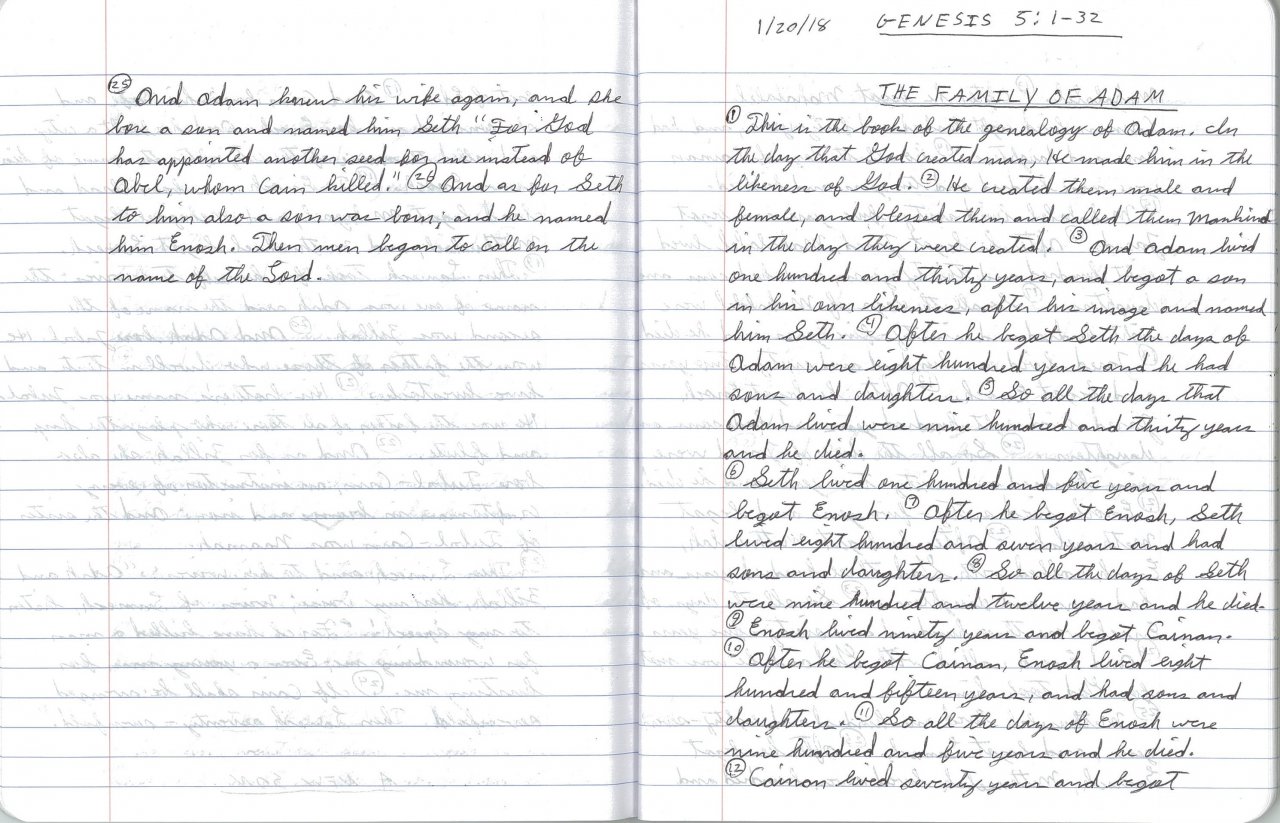 (25) And Adam knew his wife again, and she
bore a son and named him Seth "For God
has appointed another seed for me instead of
Abel, whom Cain killed." (26) And as for Seth
to him also a son was born; and he named
him Enosh. Then men began to call on the
name of the Lord.
1/20/18 GENESIS 5:1-32
THE FAMILY OF ADAM
(1) This is the book of the genealogy of Adam. In
the day that God created man, He made him in the
likeness of God. (2) He created them male and
female, and blessed them and called them Mankind
in the day they were created. (3) And Adam lived
one hundred and thirty years, and begot a son
in his own likeness, after his image and named
him Seth. (4) After he begot Seth the days of
Adam were eight hundred years and he had
sons and daughters. (5) So all the days that
Adam lived were nine hundred and thirty years
and he died.
(6) Seth lived one hundred and five years and
begot Enosh. (7) After he begot Enosh, Seth
lived eight hundred and seven years and had
sons and daughters. (8) So all the days of Seth
were nine hundred and twelve years and he died.
(9) Enosh lived ninety years and begot Cainan.
(10) After he begot Cainan, Enosh lived eight
hundred and fifteen years, and had sons and
daughters. (11) So all the days of Enosh were
nine hundred and five years and he died.
(12) Cainan lived seventy years and begot